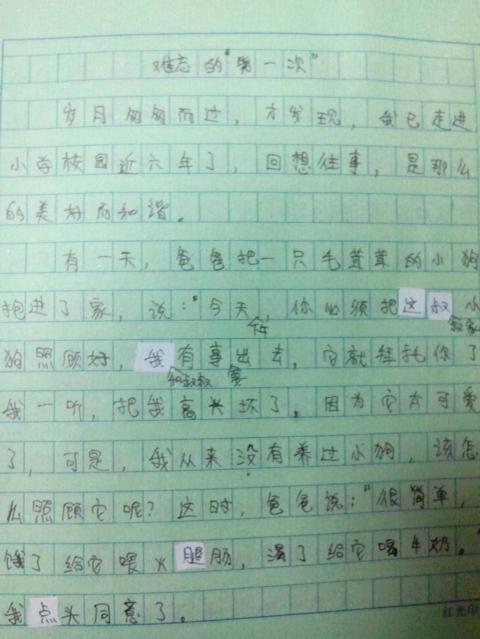 难忘的"第一次"
岁月匆匆而过，才发现，我已走进
小学校园近六年了，回想往事，是那么
的美好而和谐。
有一天，爸爸把一只毛茸茸的小狗
抱进了家，说："今天，你必须把这叔小
狗照顾好，我有事出去，它就拜托你了
我一听，把我高兴坏了。因为它太可爱
了，可是，我从来没有养过小狗，该怎
么照顾它呢？这时，爸爸说："很简单，
饿了给它喂火腿肠，渴了给它喂牛奶。"
我点头同意了。